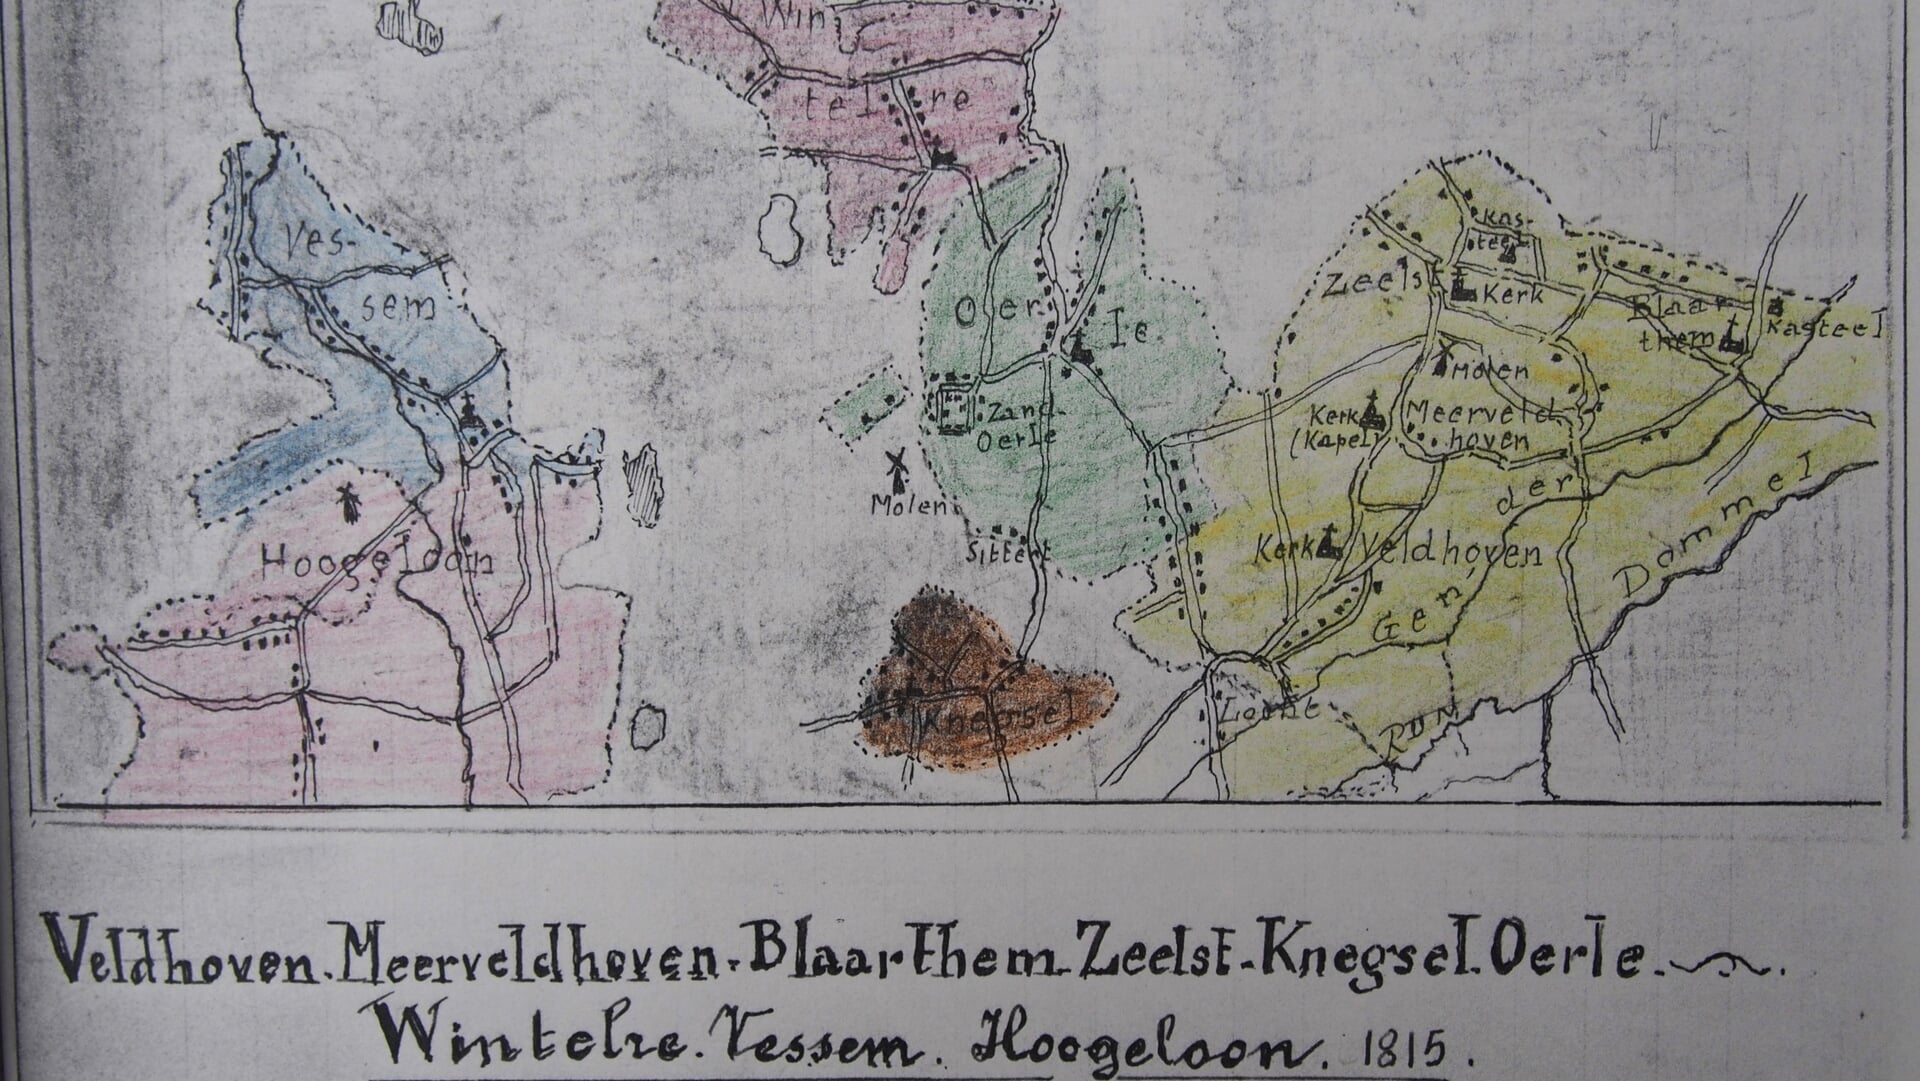 Win
tel re
Ves-
sem
Hoogeloon
Oer Ie
Zand-
Oerle
Molen
Sittert
Knegsel
Kas-
teel
Zeelst
Kerk
Blaar
them
Kasteel
Molen
Kerk
(Kapel)
Meerveld
hoven
Kerk
Veldhoven
Gen der
Dommel
Run
Locht
Veldhoven. Meerveldhoven. Blaarthem. Zeelst. Knegsel. Oerle.
Wintelre. Vessem. Hoogeloon. 1815.